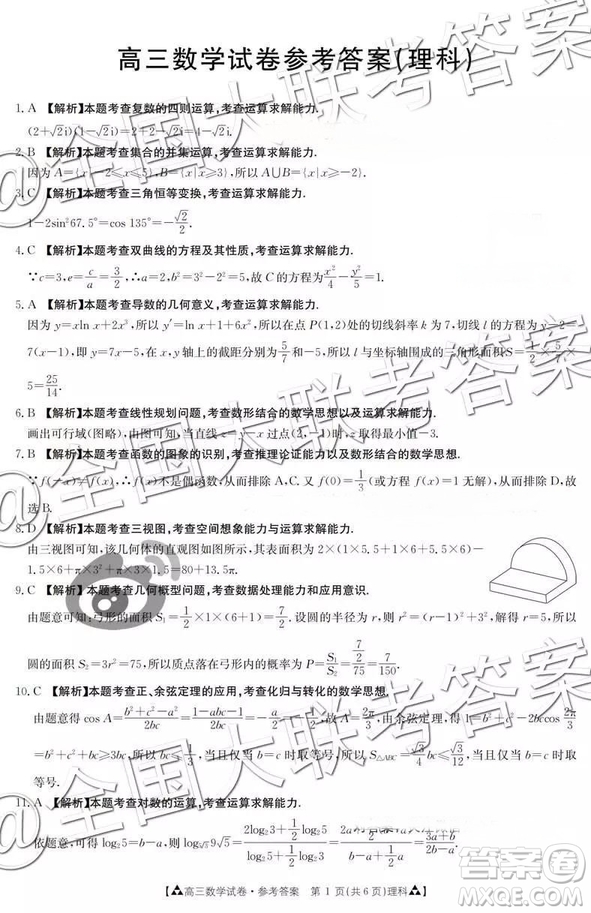 高三数学试卷参考答案(理科)
1. A 【解析】本题考查复数的四则运算,考查运算求解能力.
(2+√2i)(1-√2i)=2+2-√2i=4-√2i.
2. B 【解析】本题考查集合的并集运算,考查运算求解能力.
因为A={x|-2≤x≤5},B={x|x≥3},所以A∪B={x|x≥-2}.
3. C 【解析】本题考查三角恒等变换,考查运算求解能力.
1-2sin²67.5°=cos 135°=-√2/2.
4. C 【解析】本题考查双曲线的方程及其性质,考查运算求解能力.
∵c=3,e=c/a=3/2,∴a=2,b²=3²-2²=5,故C的方程为x²/4-y²/5=1.
5. A 【解析】本题考查导数的几何意义,考查运算求解能力.
因为y=xln x+2x³,所以y′=ln x+1+6x²,所以在点P(1,2)处的切线斜率k=7,切线l的方程为y-2=
7(x-1),即y=7x-5,在x轴、y轴上的截距分别为5/7和-5,所以直线l与坐标轴围成的三角形面积S=1/2×5/7×
5=25/14.
6. B 【解析】本题考查线性规划问题,考查数形结合的数学思想以及运算求解能力.
画出可行域(图略),由图可知,当直线z=y-x过点(2,-1)时,z取得最小值-3.
7. B 【解析】本题考查函数的图象的识别,考查推理论证能力以及数形结合的数学思想.
∵f(-x)≠f(x),∴f(x)不是偶函数,从而排除A,D.又f(0)=1/3(或f(x)=1无解),从而排除C,故
选B.
8. D 【解析】本题考查三视图,考查空间想象能力与运算求解能力.
由三视图可知,该几何体的直观图如图所示,所以该几何体的表面积为2×(1.5×4+1.5×6+
1.5×6+π×3²+π×3×1.5=80+13.5π.
9. C 【解析】本题考查几何概型问题,考查数据处理能力和应用意识.
由题意可知:弓形的面积S₁=1/2×1×(6+1)=7/2.设圆的半径为r,则r²=(r-1)²+3²,解得r=5,所以
圆的面积S₂=3r²=75,所以所求的概率为P=S₁/S₂=7/2/75=7/150.
10. C 【解析】本题考查正、余弦定理的应用,考查化归与转化的数学思想.
由题意得cos A=b²+c²-a²/2bc=1-abc-a²/2bc=-a/2,所以A=2π/3,由余弦定理,得a²=b²+c²-2bccos2π/3
=b²+c²+bc≥3bc,所以bc≤1/3,当且仅当b=c时取等号,所以S△ABC≤√3/12,当且仅当b=c时取
等号.
11. A 【解析】本题考查对数的运算,考查运算求解能力.
依题意,可得log₂5=b-a,则log₅9√5=2log₂3+1/2log₂5/log₂5=2a+1/2(b-a)/b-a=3a+b/2(b-a).
高三数学试卷·参考答案 第 1 页(共 6 页)理科
@全国大联考答案
@全国大联考答案
@全国大联考答案
答案圈
MXQE.COM